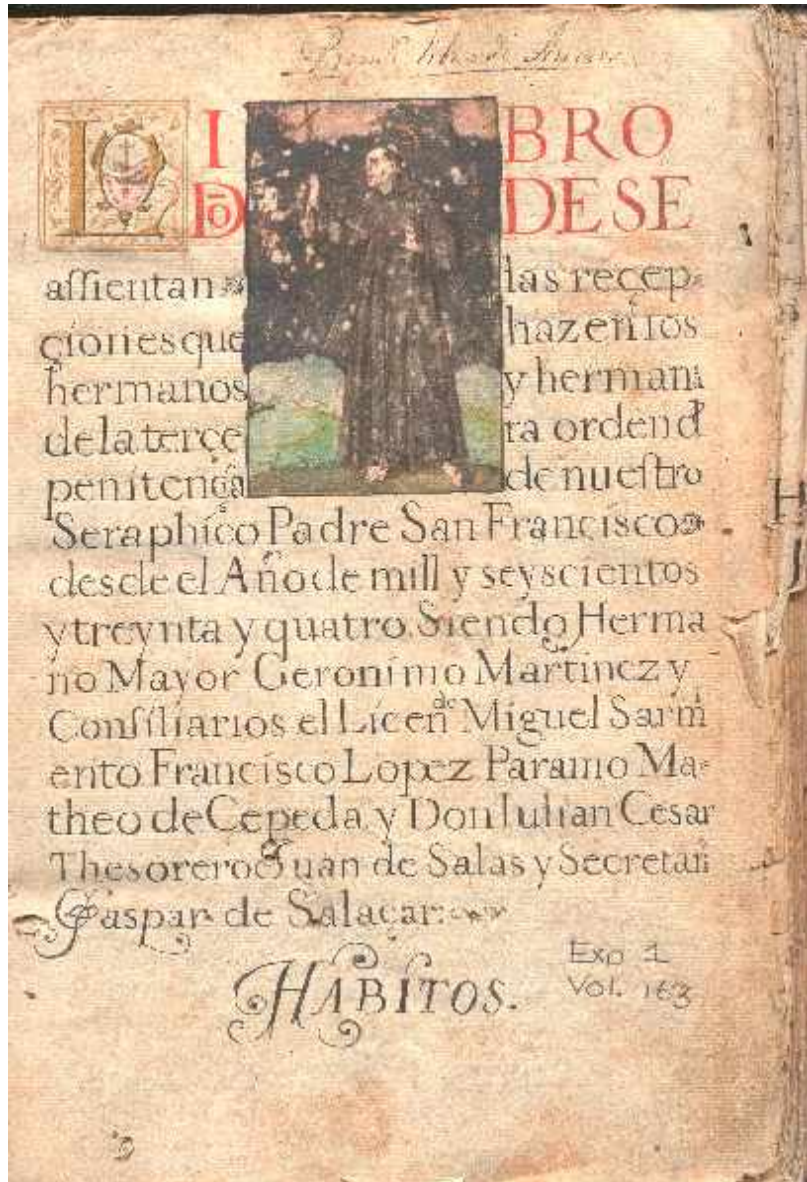 LI BRO
DŌ DESE
aſſientan las reçep-
çiones que hazen los
hermanos y herman
de la terçe ra orden d
penitença de nueſtro
Seraphico Padre San Françisco
desde el Año de mill y seyscientos
y treynta y quatro. Siendo Herma
no Mayor Geronimo Martinez y
Conſiliarios el Licen.do Miguel Sarm
ento. Francisco Lopez Paramo Ma-
theo de Cepeda. y Don Iulian Cesar
Thesorero Juan de Salas y Secretari
Gaspar de Salaçar:
HABITOS.
Exp 1
Vol. 163